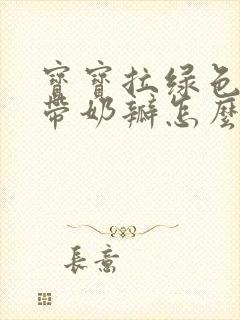 寶寶拉綠色
帶奶瓣怎麼
長意